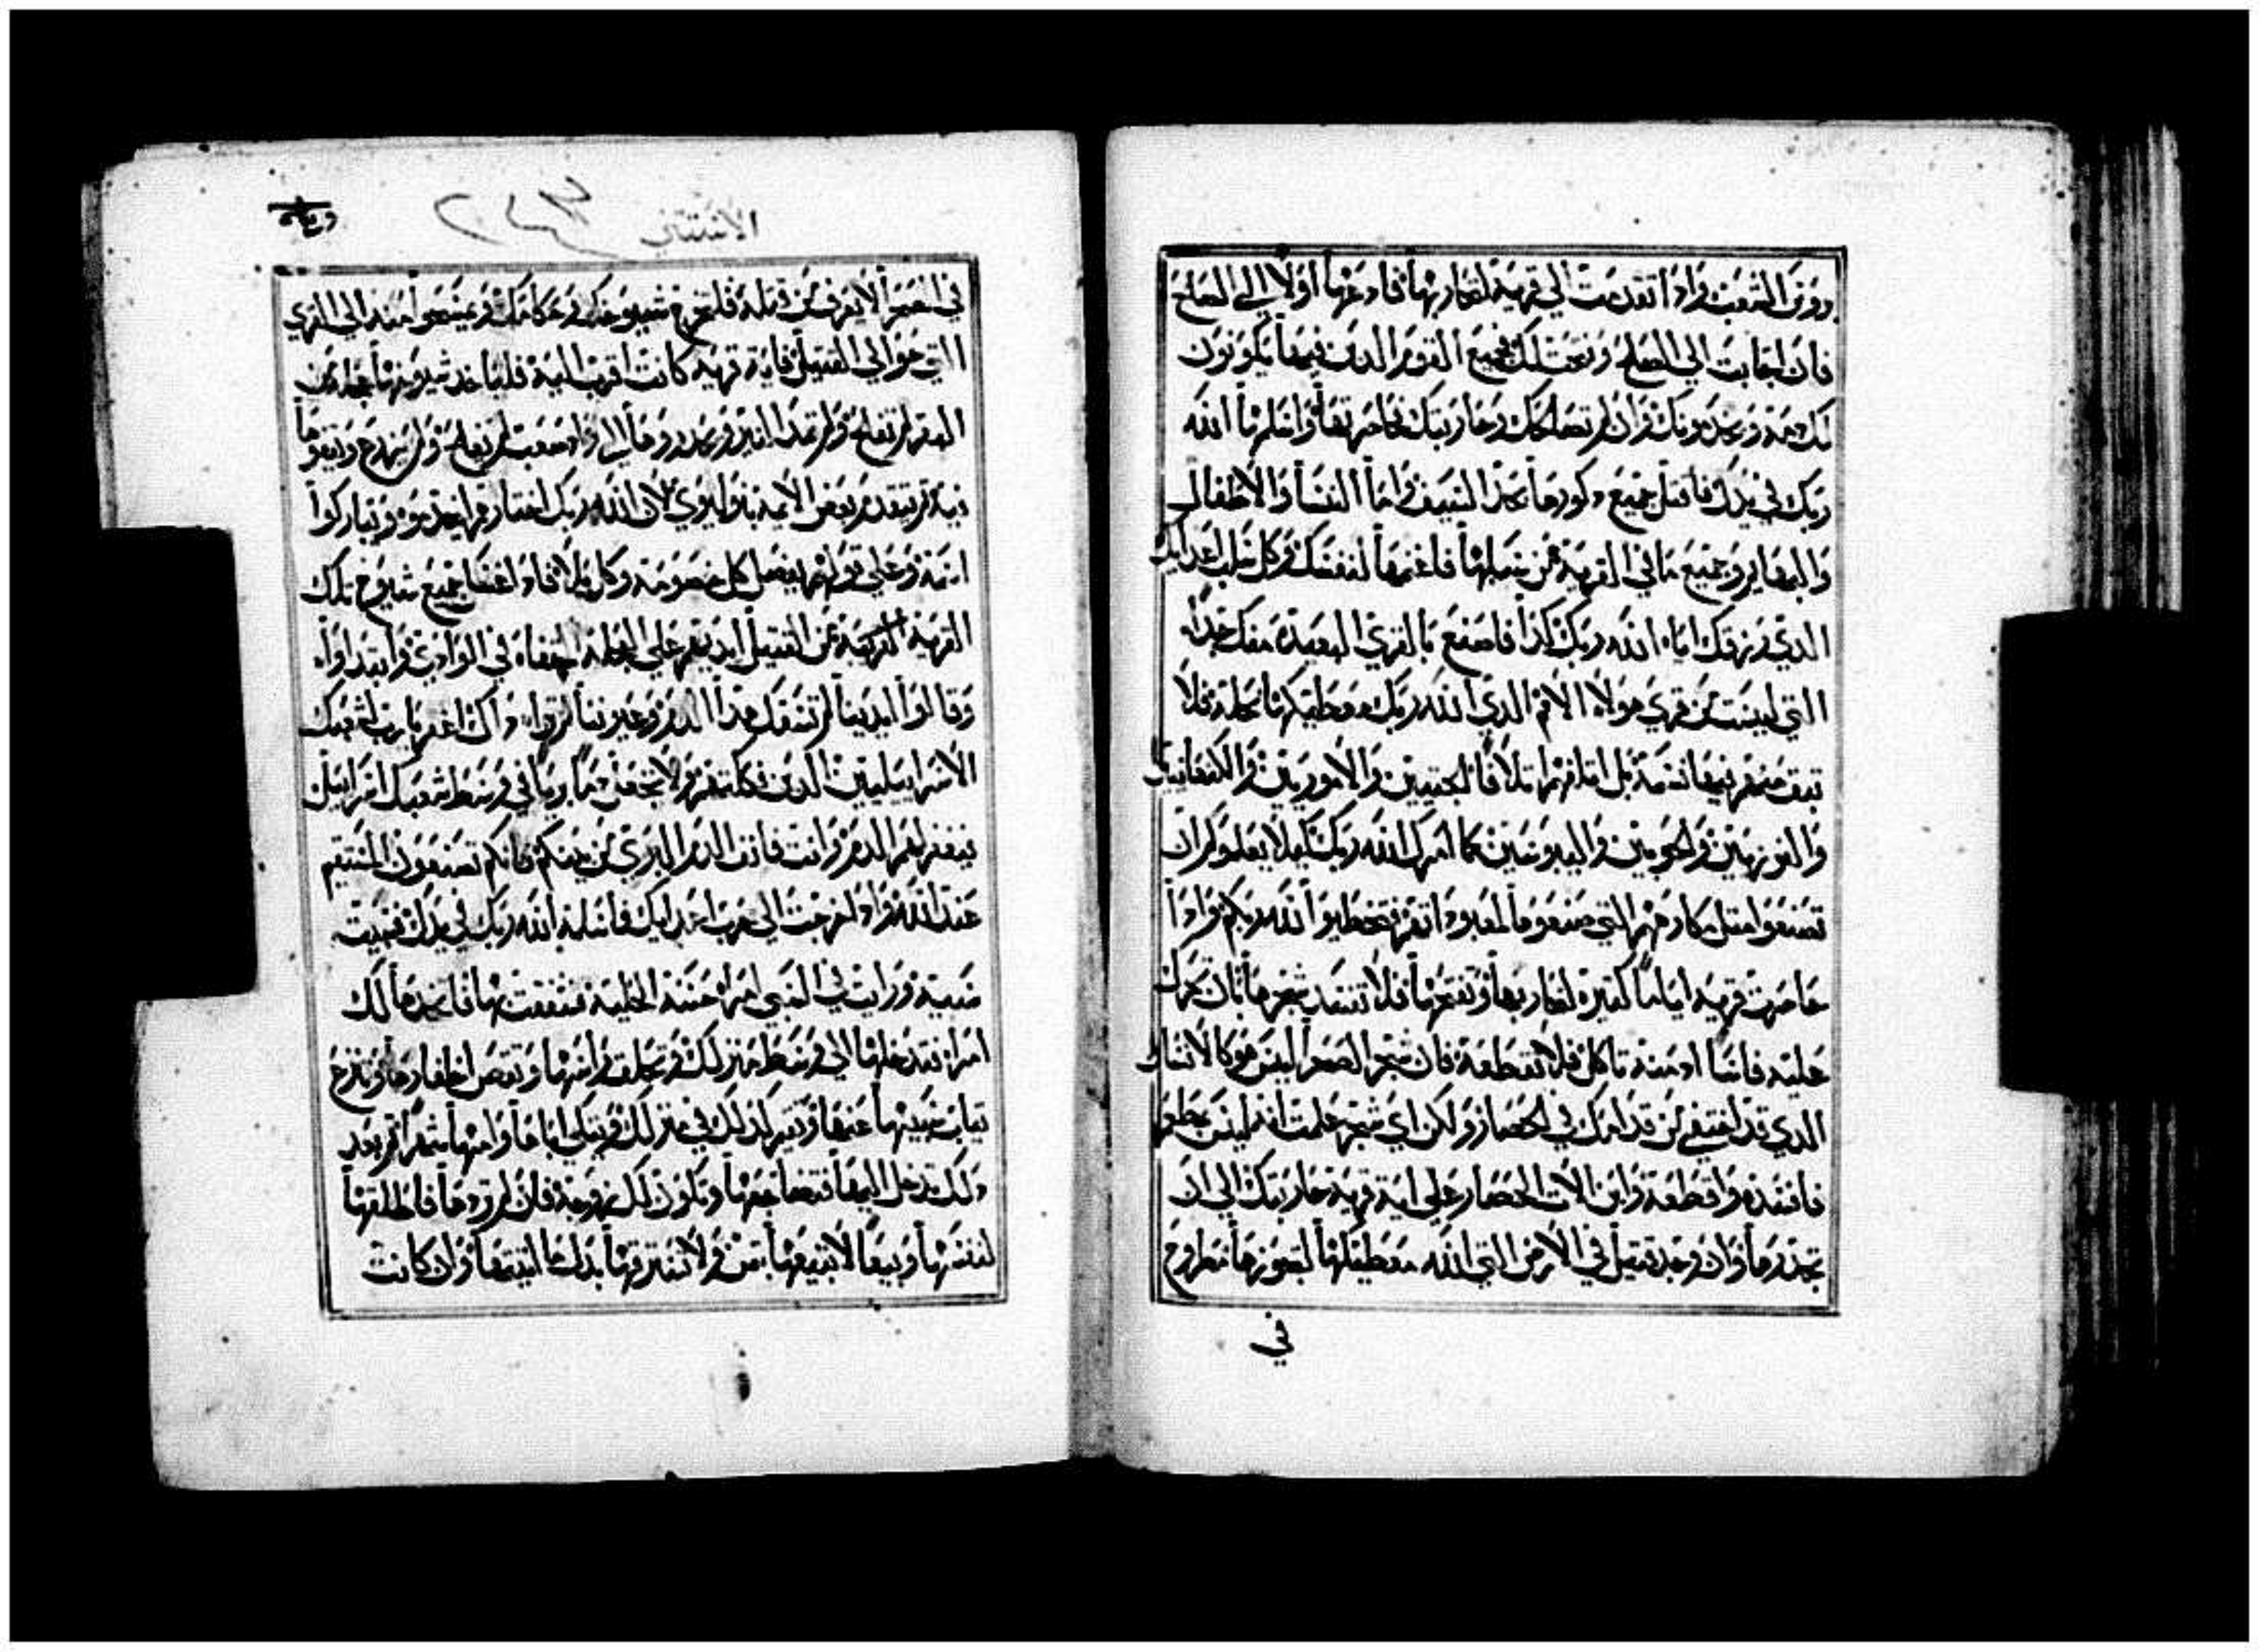 دوون الشعب واذا تقدمت الي قرية لتحاربها فادعها اولا الي الصلح
فان اجابت الي الصلح وفتحت لك فجميع القوم الدين فيها يكونون
لك دمة ويخدمونك وان لم تصالحك وحاربتك فحاصرها واسلمها الله
ربك في يدك فاقتل جميع دكورها بحد السيف واما النسا والاطفال
والبهايم وجميع ما في القرية من سلبها فاغنمها لنفسك وكل سلب اعدايك
الدي رزقك اياه الله ربك كدا فاصنع بالقري البعيدة منك جدا
التي ليست من قري هولاء الامم الدي الله ربك معطيكها نحلة فلا
تبق منهم فيها نسمة بل اتلفهم اتلافا الحتيين والاموريين والكنعانيين
والفرزيين والحويين واليبوسيين كما امرك الله ربك كيلا يعلموكم ان
تصنعوا مثل مكارههم التي صنعوها لمعبوداتهم فتخطيوا لله ربكم واذا
حاصرت قرية اياما كثيرة لتحاربها وتفتحها فلا تفسد شجرها بان تحرك
عليه فاسا اد منه تاكل فلا تقطعه فان شجر الصحرا ليس هو كالانسان
الدي قد اختفي من قدامك في الحصار ولكن اي شجر علمت انه ليس بطعم
فافسده واقطعه وابن الات الحصار علي اية قرية حاربتك الي ان
تحدرها وان وجد قتيل في الارض التي الله معطيكها لتحوزها مطروح
في
الاستثني
٢٤٣
في الصحرا لا يعرف من قتله فلتخرج شيوخك وحكامك وعيسحوا منه الي القري
التي حوالي القتيل فاية قرية كانت اقرب اليه فلياخد شيوخها عجلة من
البقر لم تفلح ولم تمد النير ويحدروها الي واد صعب لم يفلح ولم يزرع ويقفوها
فيه ثم يتقدم بعض الايمة بنو ليوي لان الله ربك اختارهم ليخدموه ويباركوا
اسمه وعلي قولهم يفصل كل خصومة وكل بلا فادا اغتسل جميع شيوخ تلك
القرية القريبة من القتيل ايديهم علي العجلة المقفاه في الوادي وابتداوا
وقالوا ايدينا لم تسفك هدا الدم وعيوننا لم تراه داك اغفر يا رب لشعبك
الاسراييليين الدين فككتهم ولا تجعل دما بريا في وسط شعبك اسراييل
فيغفر لهم الدم وانت فانف الدم البري من بينكم فانكم تصنعون المستقيم
عند الله وادا خرجت الي حرب اعدايك فاسلمه الله ربك في يدك فسبيت
سبيه ورايت في السبي امراة حسنة الحلية فشغفت بها فاتخدها لك
امراة فتدخلها الي وسط منزلك وتحلق راسها وتقص اظفارها وتنزع
تياب سبيها عنها وتقيم كدلك في منزلك وتبكي اباها وامها شهرا ثم بعد
دلك تدخل اليها فتضاجعها وتكون لك زوجة فان لم تردها فاطلقها
لنفسها وبيعا لا تبيعها بثمن ولا تسترقها بدل ما اتيتها وان كانت